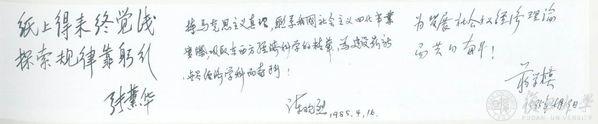 纸上得来终觉浅
探索规律靠躬行
张薰华
按马克思主义真理，联系我国社会主义四化事业
实际，吸取东西方经济科学的精华，为建设新的
经济学科而奋斗！
1985.4.16.
为发展社会主义经济理论
而共同奋斗！
蒋学模
復旦大學
FUDAN UNIVERSITY